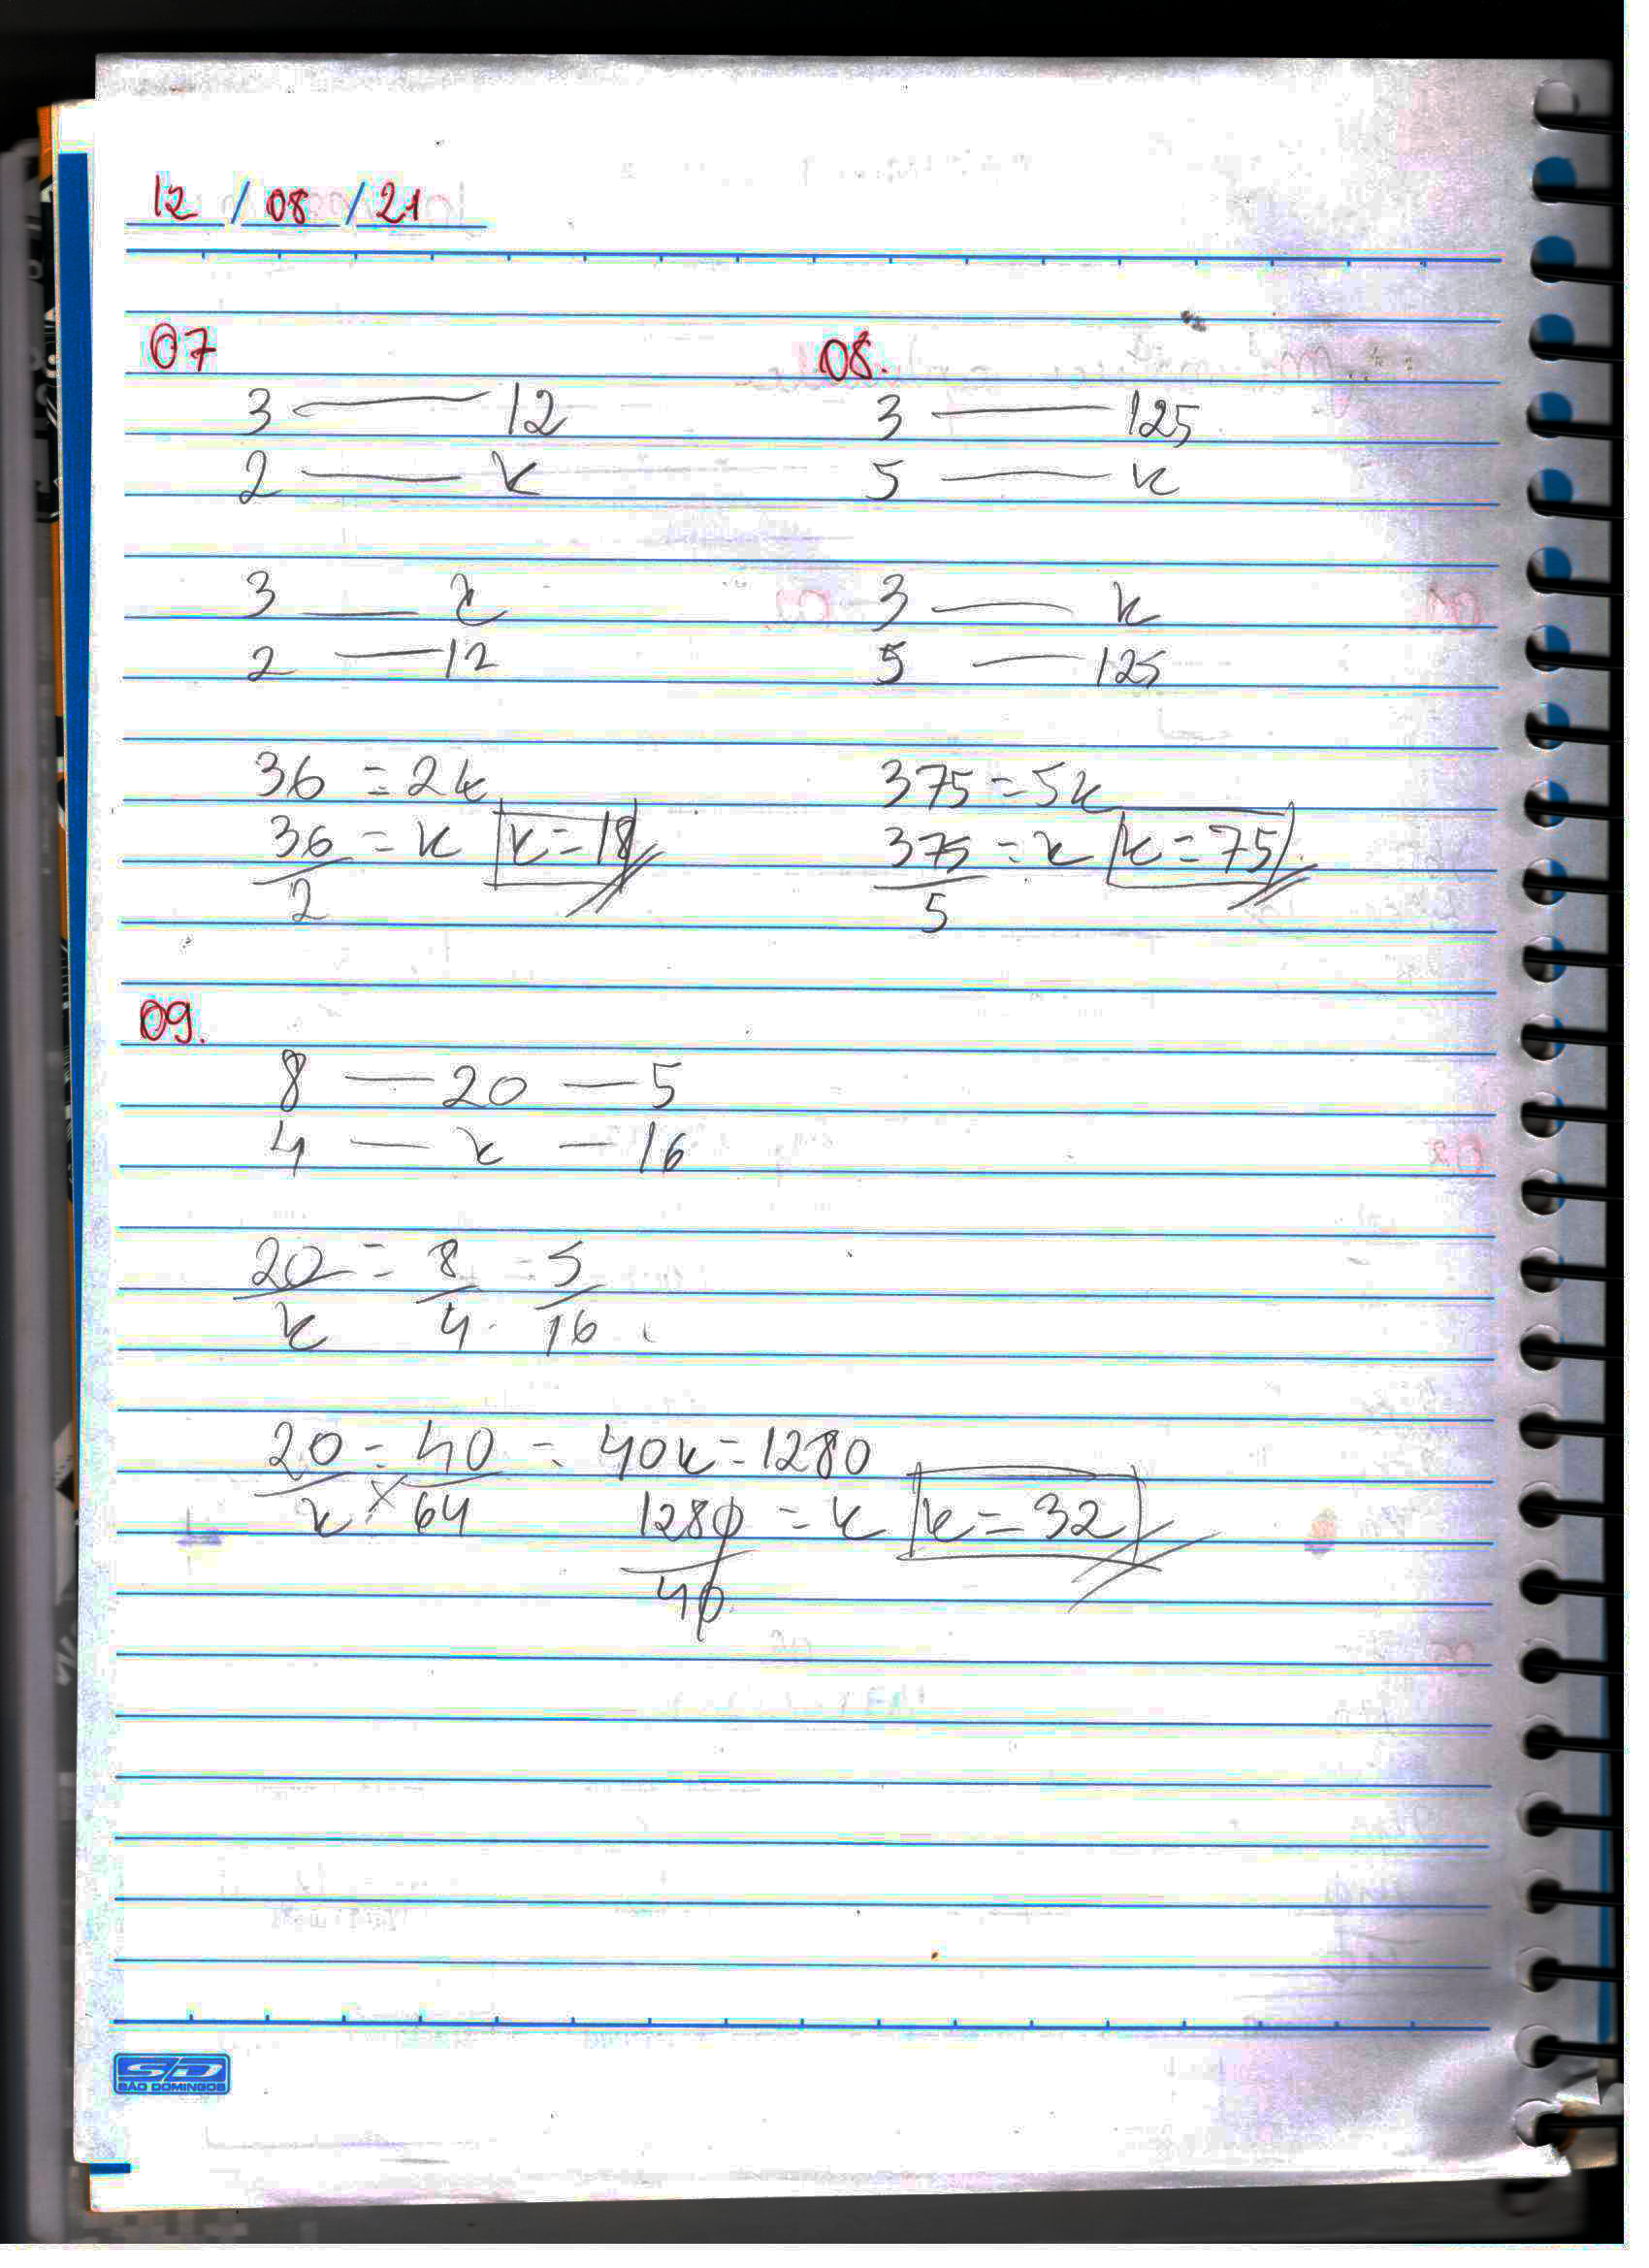 12 / 08 / 21
07
3 — 12
2 — x
3 — x
2 — 12
36 = 2x
36/2 = x x = 18
08.
3 — 125
5 — x
3 — x
5 — 125
375 = 5x
375/5 = x x = 75
09.
8 — 20 — 5
4 — x — 16
20/x = 8/4 = 5/16
20/x = 40/64 = 40x = 1280
1280/40 = x x = 32
SD
SÃO DOMINGOS